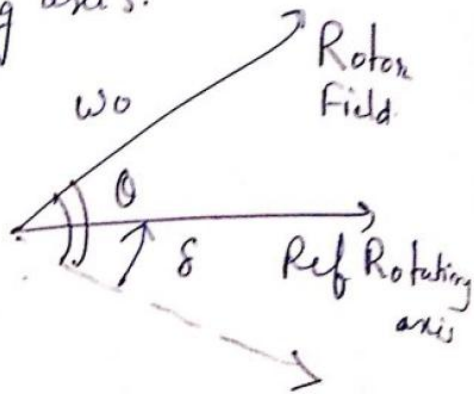 g axis.
Rotor
Field
ωo
θ
δ
Ref Rotating
axis